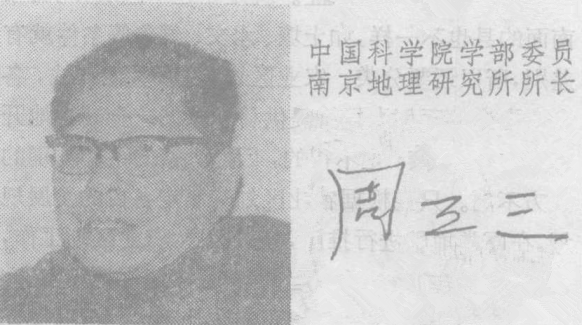 中国科学院学部委员
南京地理研究所所长
周立三